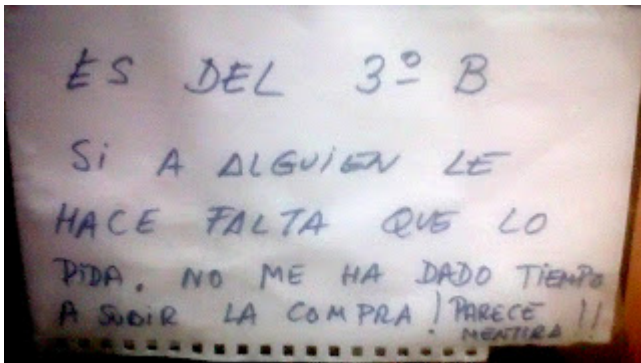 ES DEL 3º B
Si A ALGUiEN LE
HACE FALTA QUE LO
PIDA. NO ME HA DADO TiEMPO
A SUBiR LA COMPRA ¡PARECE
MENTiRA!!